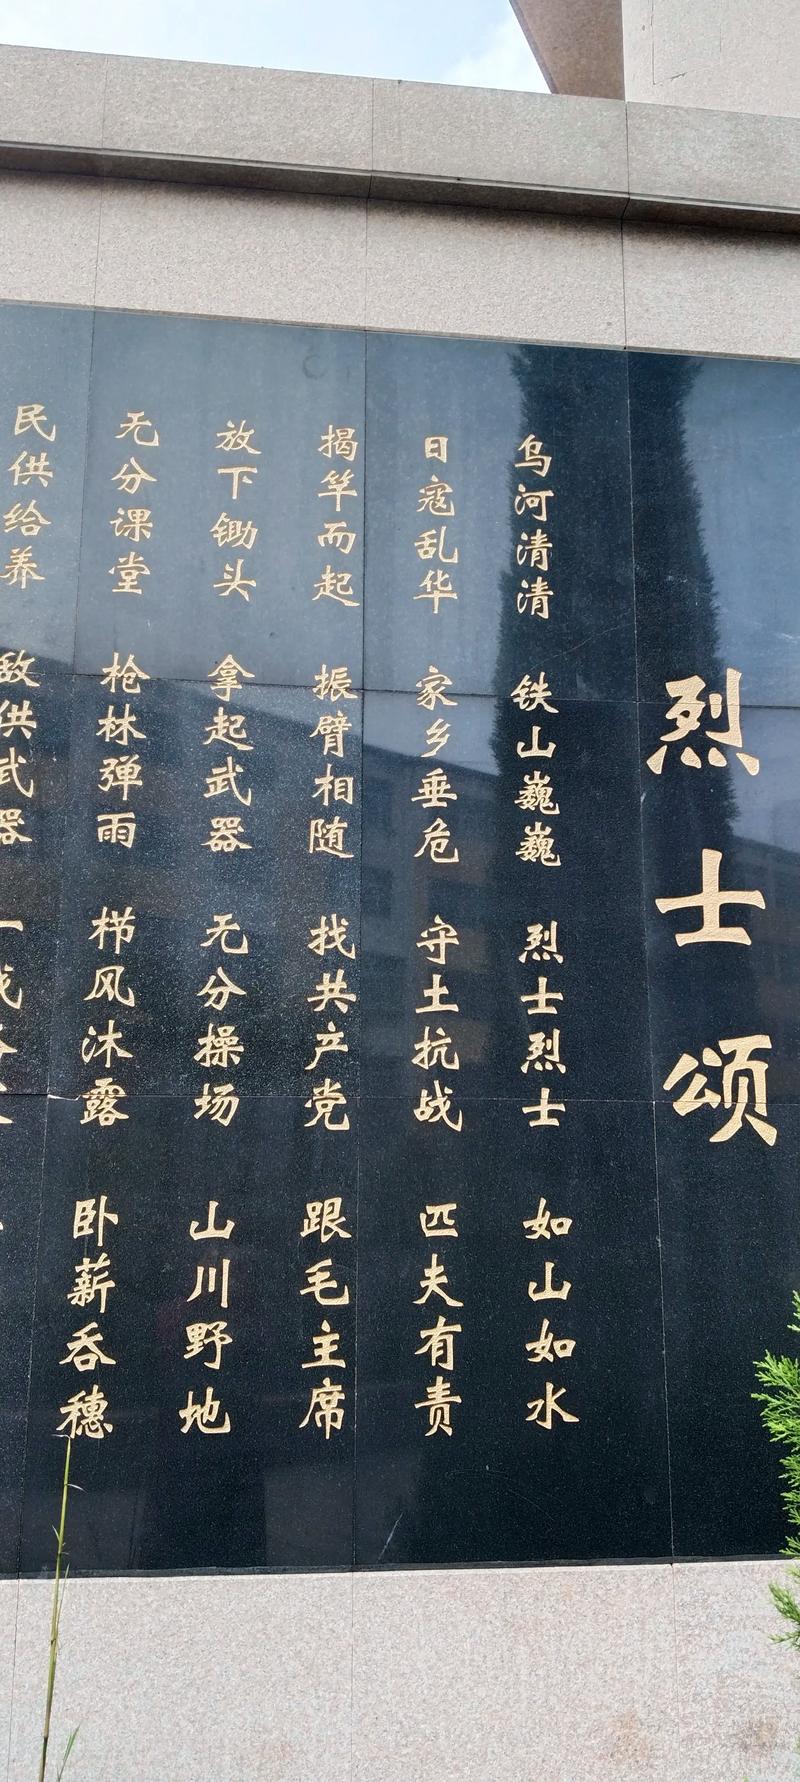 烈士颂
乌河清清 铁山巍巍 烈士烈士 如山如水
日寇乱华 家乡垂危 守土抗战 匹夫有责
揭竿而起 振臂相随 找共产党 跟毛主席
放下锄头 拿起武器 无分操场 山川野地
无分课堂 枪林弹雨 栉风沐露 卧薪吞穗
民供给养 敌供武器